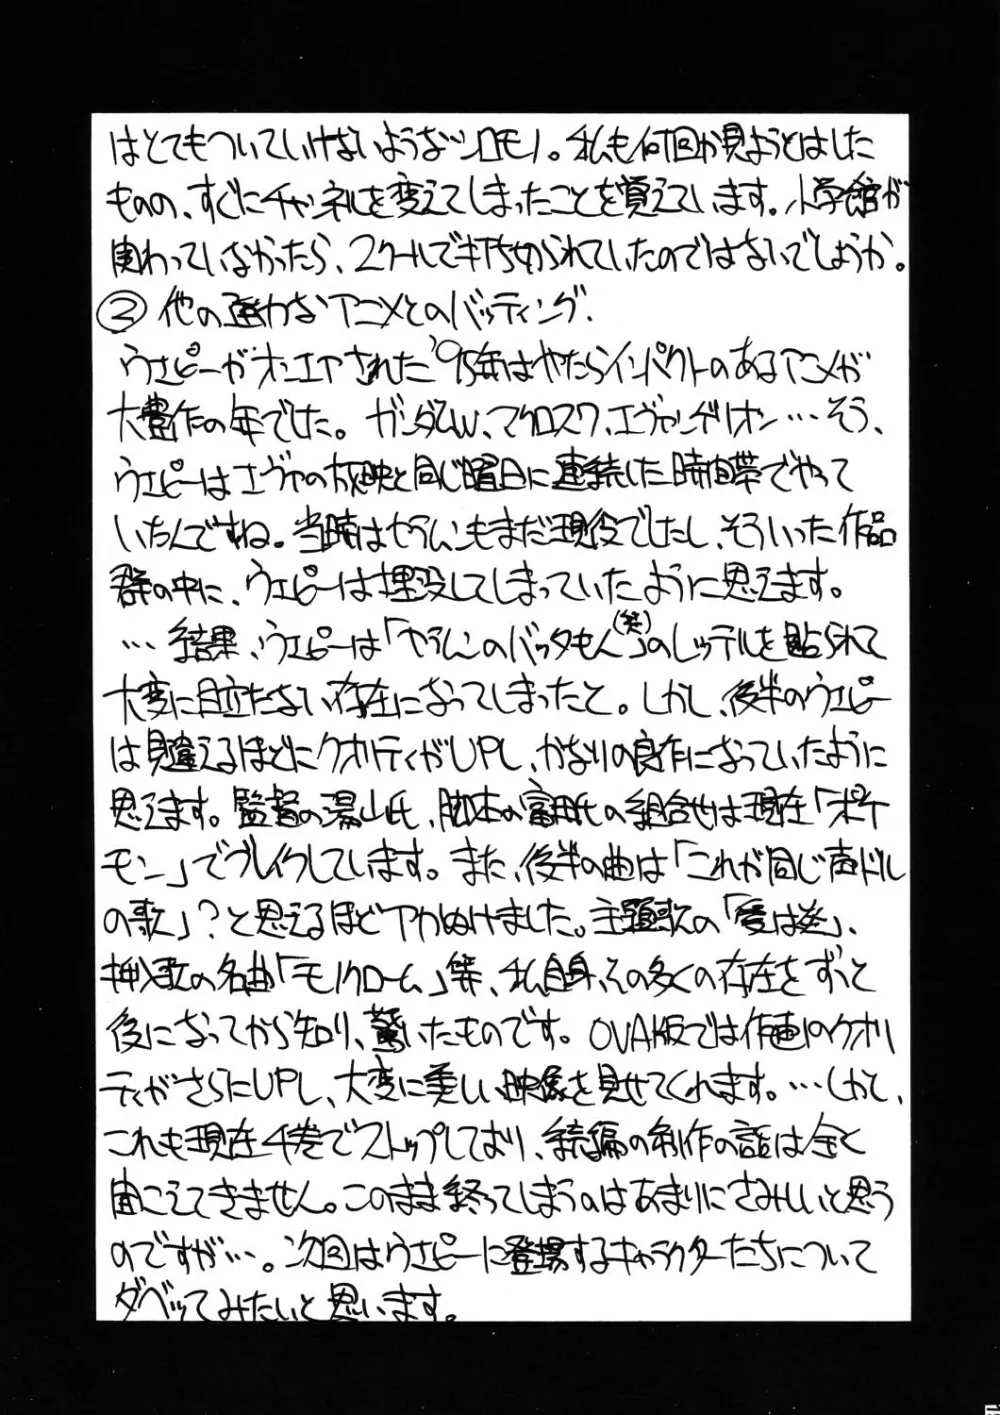 はとてもついていけないようなシロモノ。私も何回か見ようとはした
ものの、すぐにチャンネルを変えてしまったことを覚えています。小学館が
関わっていなかったら、2クールで打ち切られていたのではないでしょうか。
③他の強力なアニメとのバッティング.
ウエピーがオンエアされた'95年はやたらインパクトのあるアニメが
大豊作の年でした。ガンダムW、マクロス7、エヴァンゲリオン…そう、
ウエピーはエヴァの放映と同じ曜日に連続した時間帯でやって
いたんですね。当時はセラムンもまだ現役でしたし、そういった作品
群の中に、ウエピーは埋没してしまっていたように思えます。
…結果、ウエピーは「セラムンのバッタもん(笑)」のレッテルを貼られて
大変に目立たない存在になってしまったと。しかし、後半のウエピー
は見違えるほどにクオリティがUPし、かなりの良作になっていたように
思えます。監督の湯山氏、脚本の富田氏の組合せは現在「ポケ
モン」でブレイクしています。また、後半の曲は「これが同じ声ドル
の歌」?と思えるほどアカぬけました。主題歌の「愛は逆」、
挿入歌の名曲「モノクローム」等、私自身、その多くの存在をずっと
後になってから知り、驚いたものです。OVA版では作画のクオリ
ティがさらにUPし、大変に美しい映像を見せてくれます。…しかし、
これも現在4巻でストップしており、続編の制作の話は全く
聞こえてきません。このまま終ってしまうのはあまりにさみしいと思う
のですが…。次回はウエピーに登場するキャラクターたちについて
ダベッてみたいと思います。